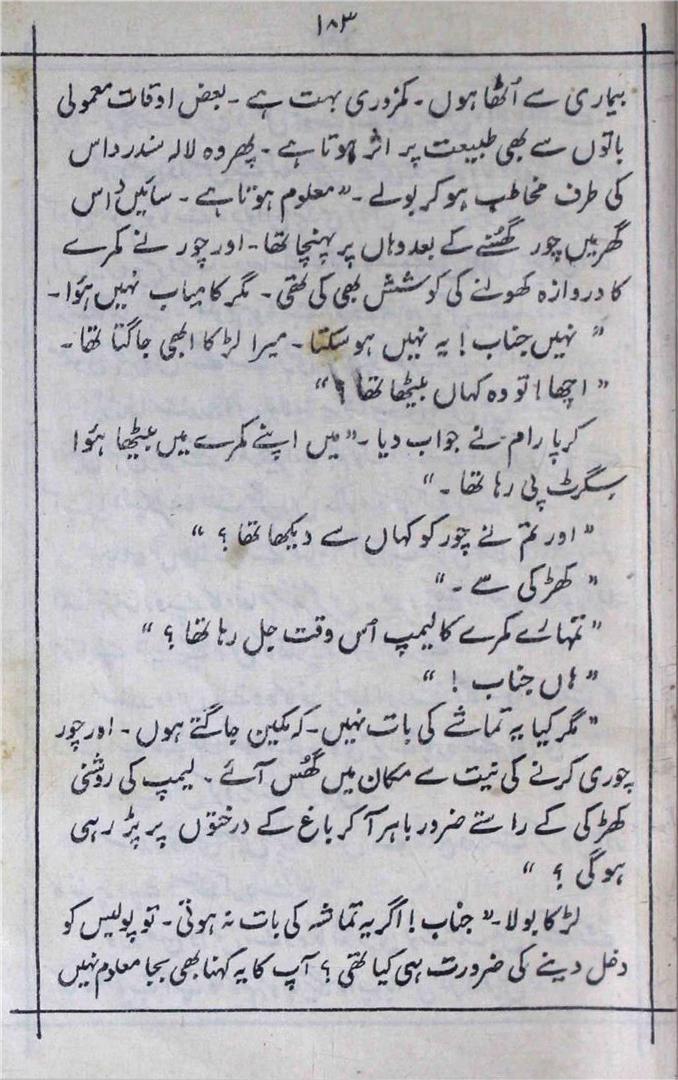 ۱۸۳
بیماری سے اُٹھا ہوں۔ کمزوری بہت ہے۔ بعض اوقات معمولی
باتوں سے بھی طبیعت پر اثر ہوتا ہے۔ پھر وہ لالہ سندر داس
کی طرف مخاطب ہو کر بولے۔ "معلوم ہوتا ہے۔ سائیں داس
گھر میں چور گھُسنے کے بعد وہاں پر پہنچا تھا۔ اور چور نے کمرے
کا دروازہ کھولنے کی کوشش بھی کی تھی۔ مگر کامیاب نہیں ہؤا۔
"نہیں جناب! یہ نہیں ہو سکتا۔ میرا لڑکا ابھی جاگتا تھا۔
"اچھا! تو وہ کہاں بیٹھا تھا؟"
کرپا رام نے جواب دیا۔ "میں اپنے کمرے میں بیٹھا ہؤا
سگرٹ پی رہا تھا۔"
"اور تم نے چور کو کہاں سے دیکھا تھا؟"
"کھڑکی سے۔"
"تمہارے کمرے کا لیمپ اُس وقت جل رہا تھا؟"
"ہاں جناب!"
"مگر کیا یہ تماشے کی بات نہیں۔ کہ مکین جاگتے ہوں۔ اور چور
چوری کرنے کی نیت سے مکان میں گھُس آئے۔ لیمپ کی روشنی
کھڑکی کے راستے ضرور باہر آ کر باغ کے درختوں پر پڑ رہی
ہوگی؟"
لڑکا بولا۔ "جناب! اگر یہ تماشہ کی بات نہ ہوتی۔ تو پولیس کو
دخل دینے کی ضرورت ہی کیا تھی؟ آپ کا یہ کہنا بھی بجا معلوم نہیں